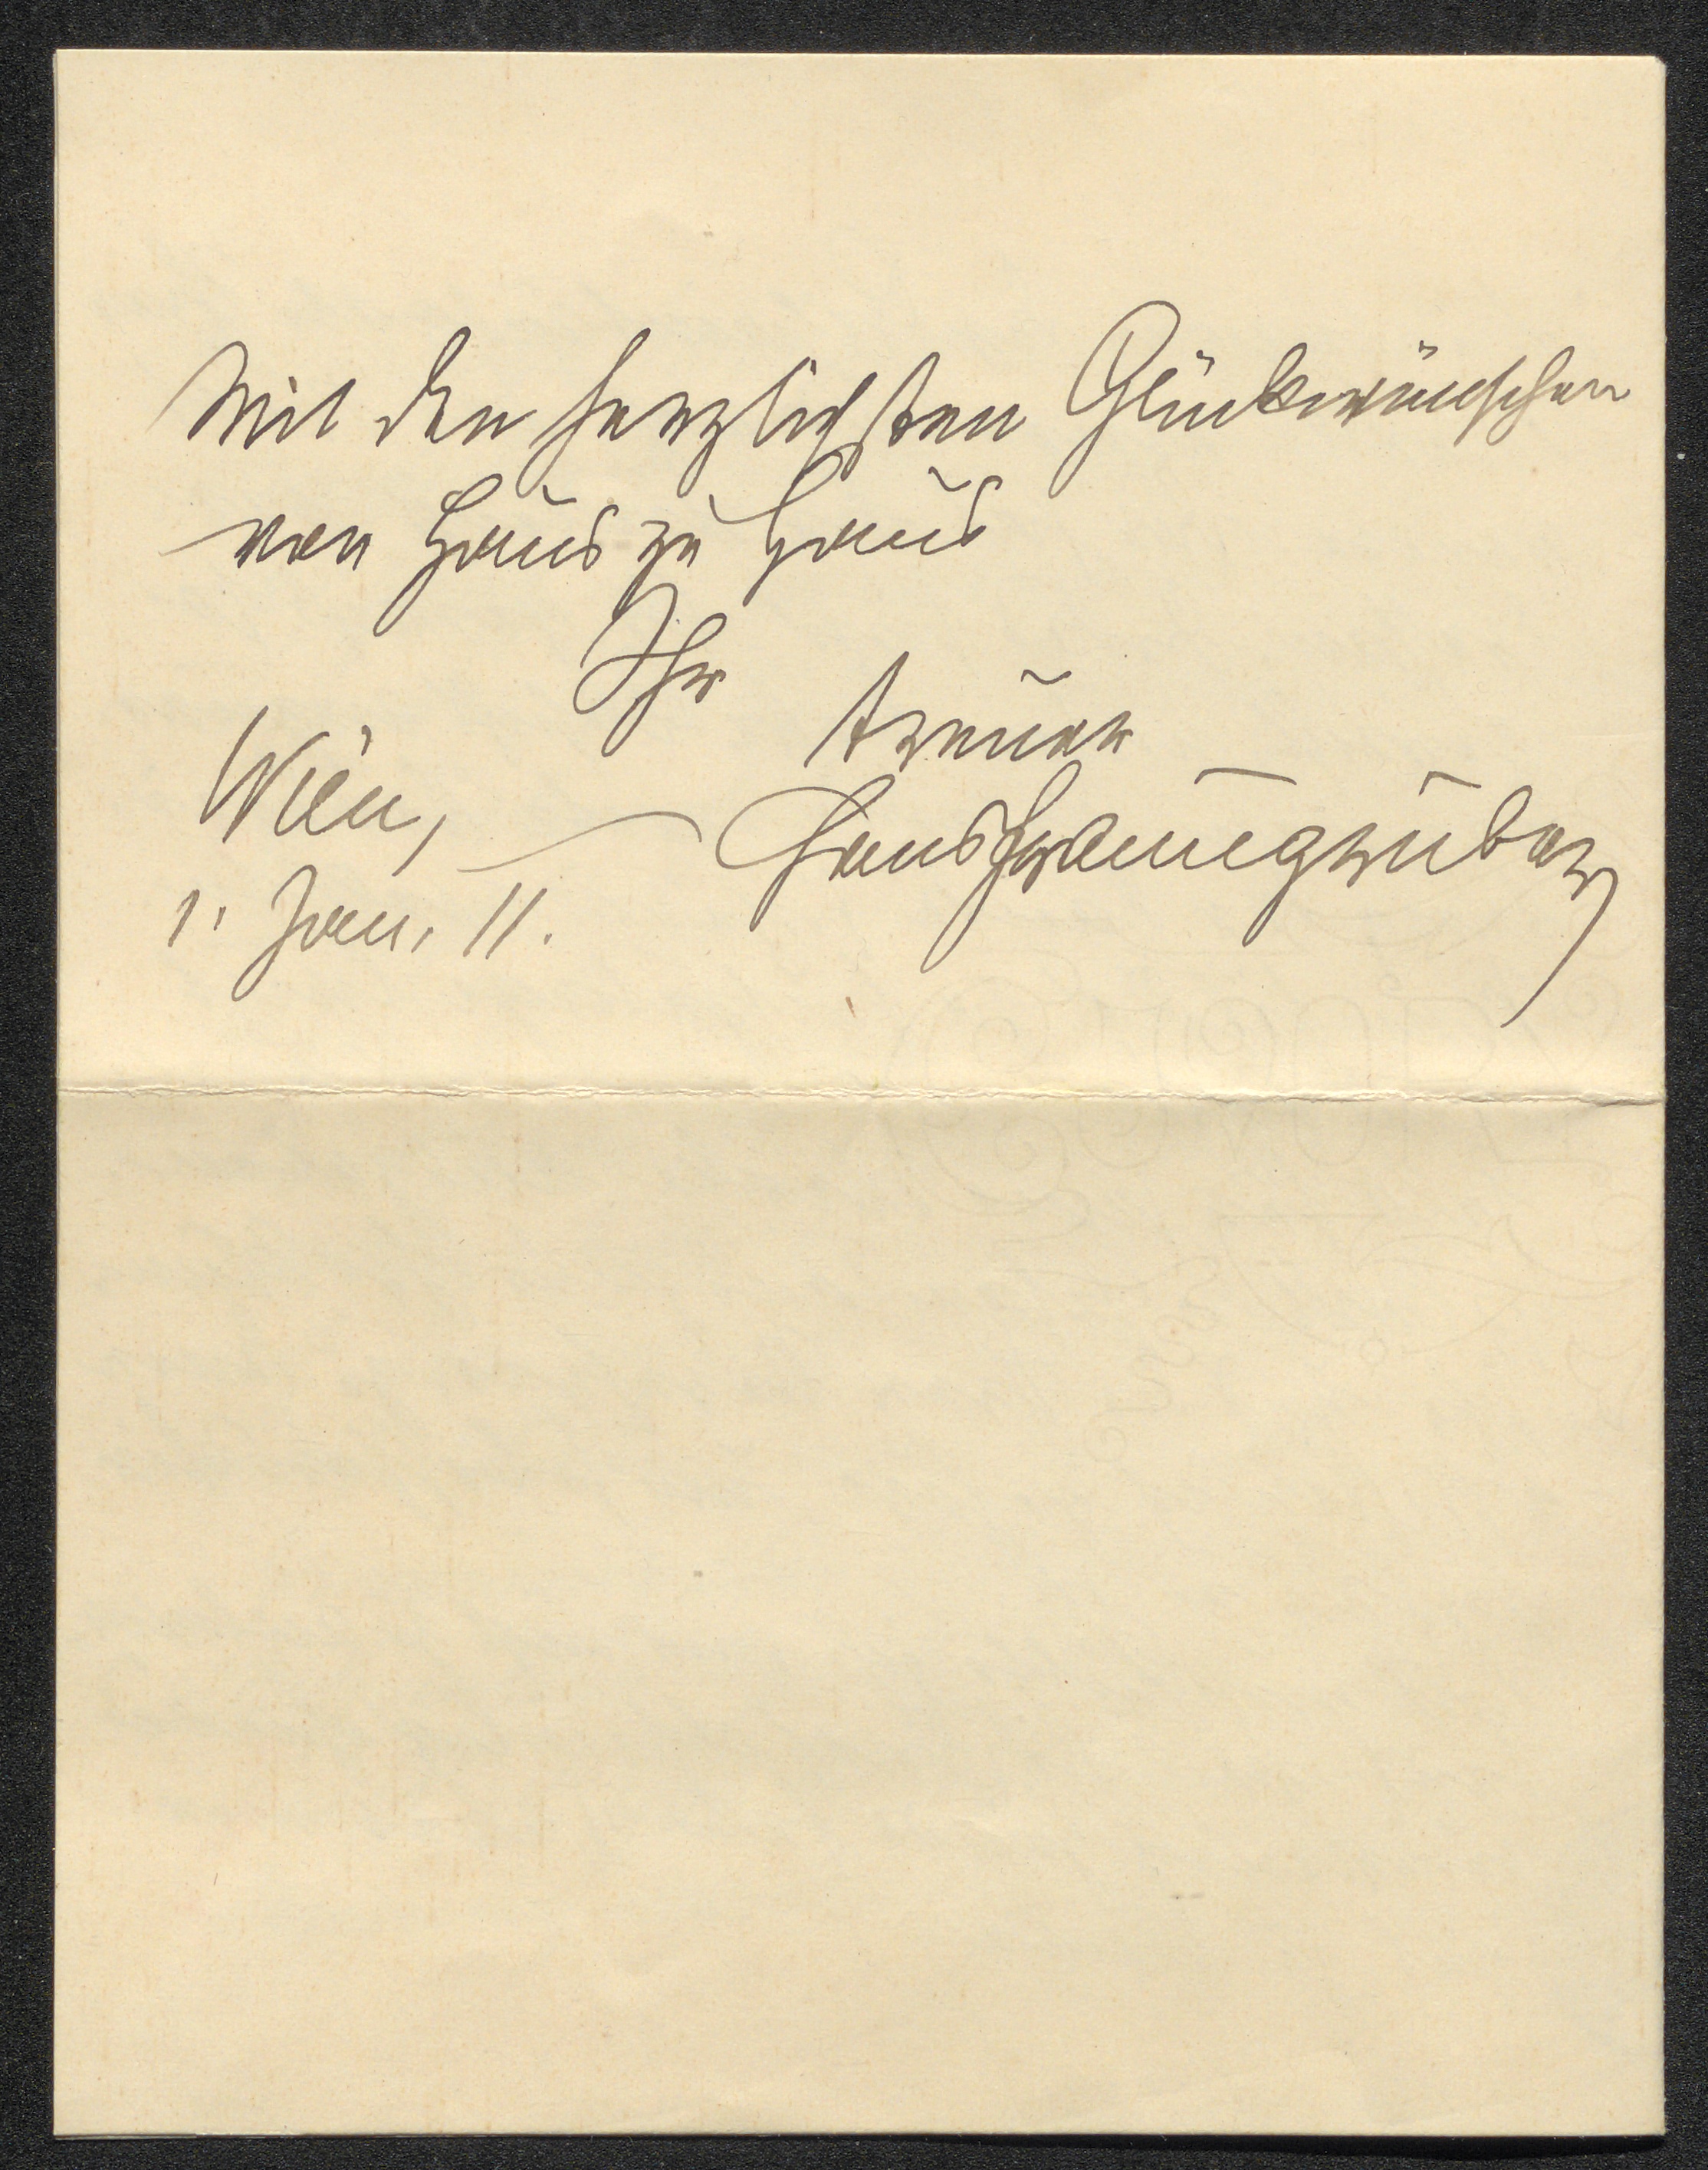 Mit den herzlichsten Glückwünschen
von Haus zu Haus
Ihr
treuer
Hans Fraungruber
Wien,
1. Jan. 11.